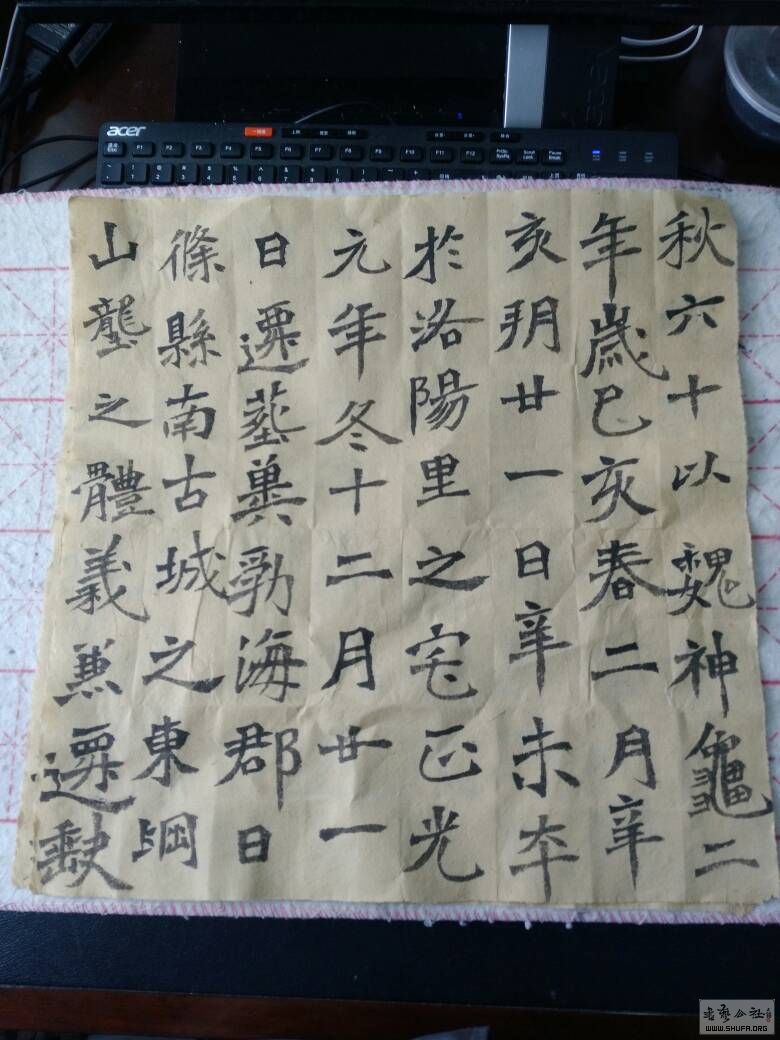 秋六十以魏神龜二
年歲己亥春二月辛
亥朔廿一日辛未卒
於洛陽里之宅正光
元年冬十二月廿一
日遷葬兾勃海郡日
條縣南古城之東堈
山壟之體義兼遷
acer
书艺公社
WWW.SHUFA.ORG